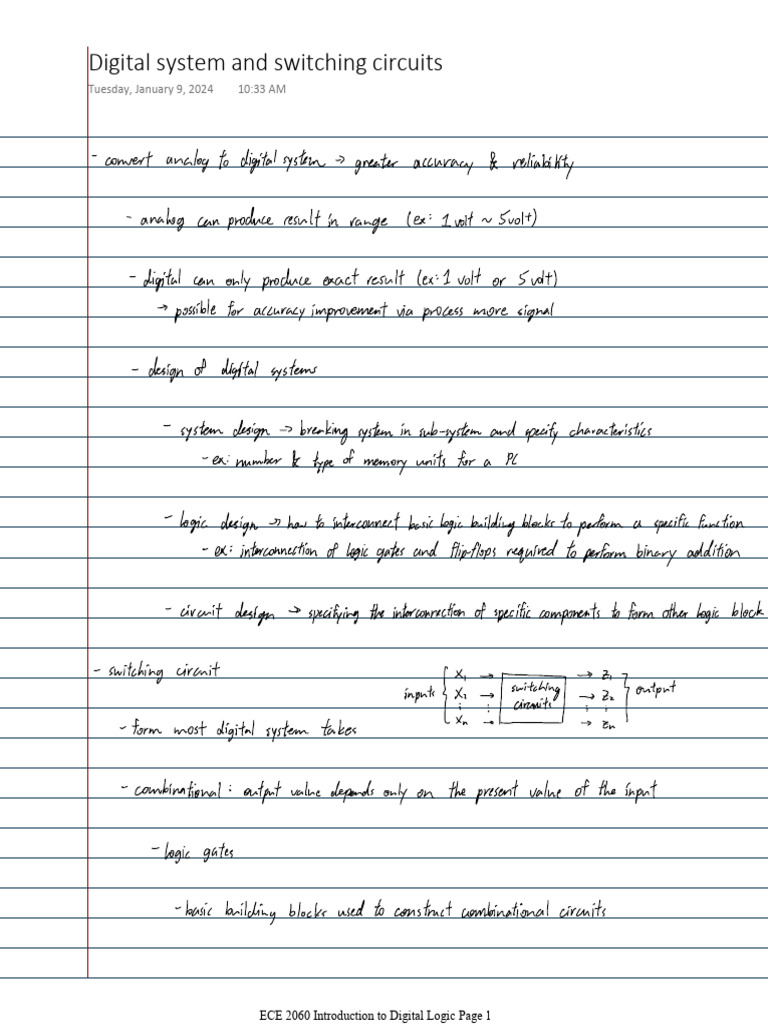 Digital system and switching circuits
Tuesday, January 9, 2024 10:33 AM
- convert analog to digital system → greater accuracy & reliability
- analog can produce result in range (ex: 1 volt ~ 5 volt)
- digital can only produce exact result (ex: 1 volt or 5 volt)
→ possible for accuracy improvement via process more signal
- design of digital systems
- system design → breaking system in sub-system and specify characteristics
- ex: number & type of memory units for a PC
- logic design → how to interconnect basic logic building blocks to perform a specific function
- ex: interconnection of logic gates and flip-flops required to perform binary addition
- circuit design → specifying the interconnection of specific components to form other logic block
- switching circuit
inputs { X₁ → switching circuits → Z₁ } output
X₂ → → Z₂
⋮ ⋮ ⋮ ⋮
Xn → → Zn
- form most digital system takes
- combinational : output value depends only on the present value of the input
- logic gates
- basic building blocks used to construct combinational circuits
ECE 2060 Introduction to Digital Logic Page 1